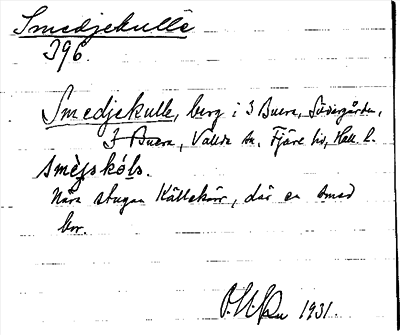 Smedjekulle
396.
Smedjekulle, berg i 3 Buera, Södergården,
3 Buera, Vallda sn, Fjäre hd, Hall. l.
smèjskóls.
Nära stugan Källekärr, där en smed
bor.
1931.